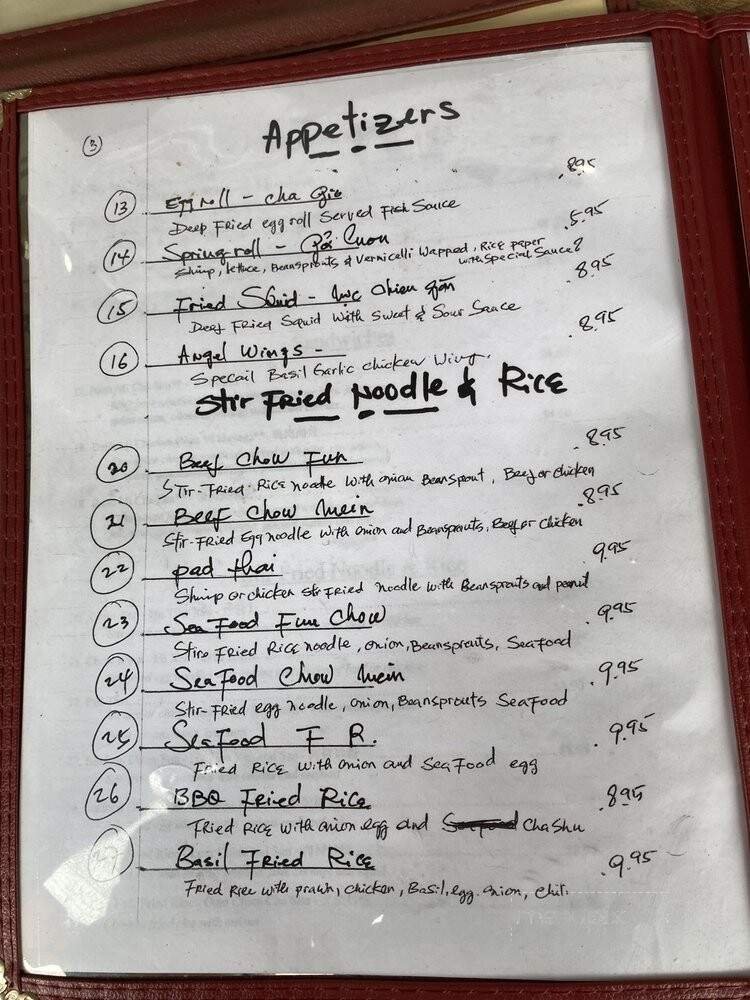 3
Appetizers
13 Egg roll - cha Gio 8.95
Deep Fried egg roll Served Fish Sauce
14 Spring roll - Gỏi Cuon 5.95
Shrimp, lettuce, Beansprouts & Vermicelli Wapped, Rice paper
with Special Sauce
15 Fried Squid - Mực Chien 8.95
Deep Fried Squid With Sweet & Sour Sauce
16 Angel Wings - 8.95
Specail Basil Garlic chicken Wing.
Stir Fried Noodle & Rice
20 Beef Chow Fun 8.95
Stir-Fried Rice noodle with onion Beansprout, Beef or chicken
21 Beef Chow Mein 8.95
Stir-Fried Egg noodle with onion and Beansprouts, Beef or Chicken
22 pad thai 9.95
Shrimp or chicken stir Fried noodle with Beansprouts and peanut
23 SeaFood Fun Chow 9.95
Fried Rice noodle, onion, Beansprouts, Seafood
24 SeaFood Chow Mein 9.95
Stir-Fried egg noodle, onion, Beansprouts SeaFood
25 SeaFood F R. 9.95
Fried Rice with onion and SeaFood egg
26 BBQ Fried Rice 8.95
Fried Rice with onion egg and Cha Shu
27 Basil Fried Rice 9.95
Fried Rice with prawn, chicken, Basil, egg. onion, chili.